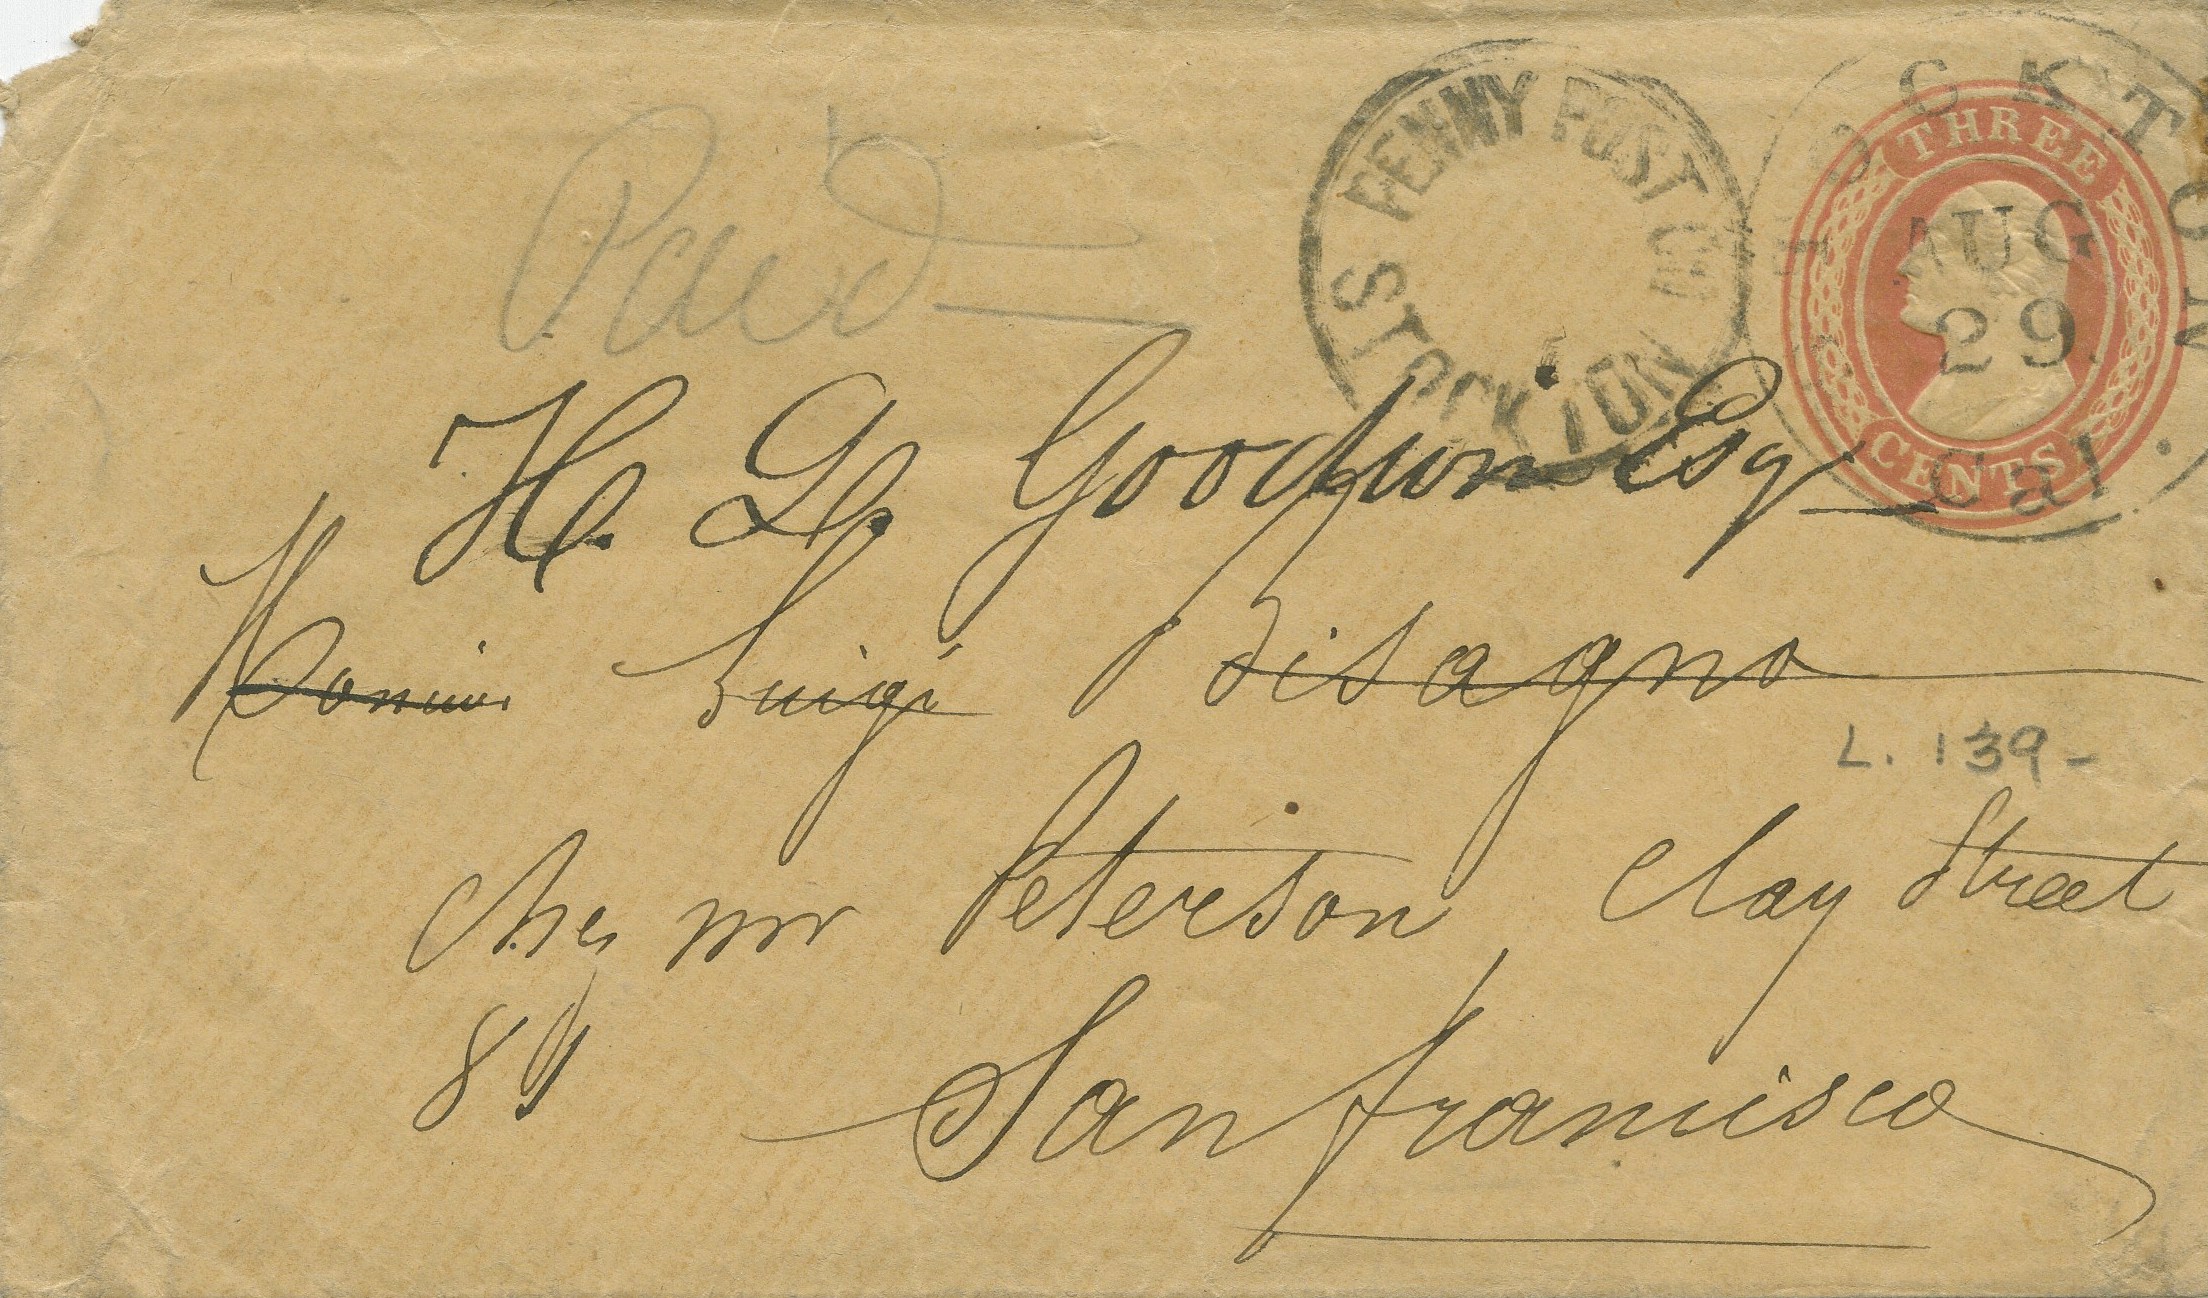 Paid
PENNY POST CO
STOCKTON
STOCKTON
AUG
29
Cal.
THREE
CENTS
H. L. Goodwin Esq
Luigi Bisagno
L. 139-
chez mr Peterson, Clay Street
84
San francisco